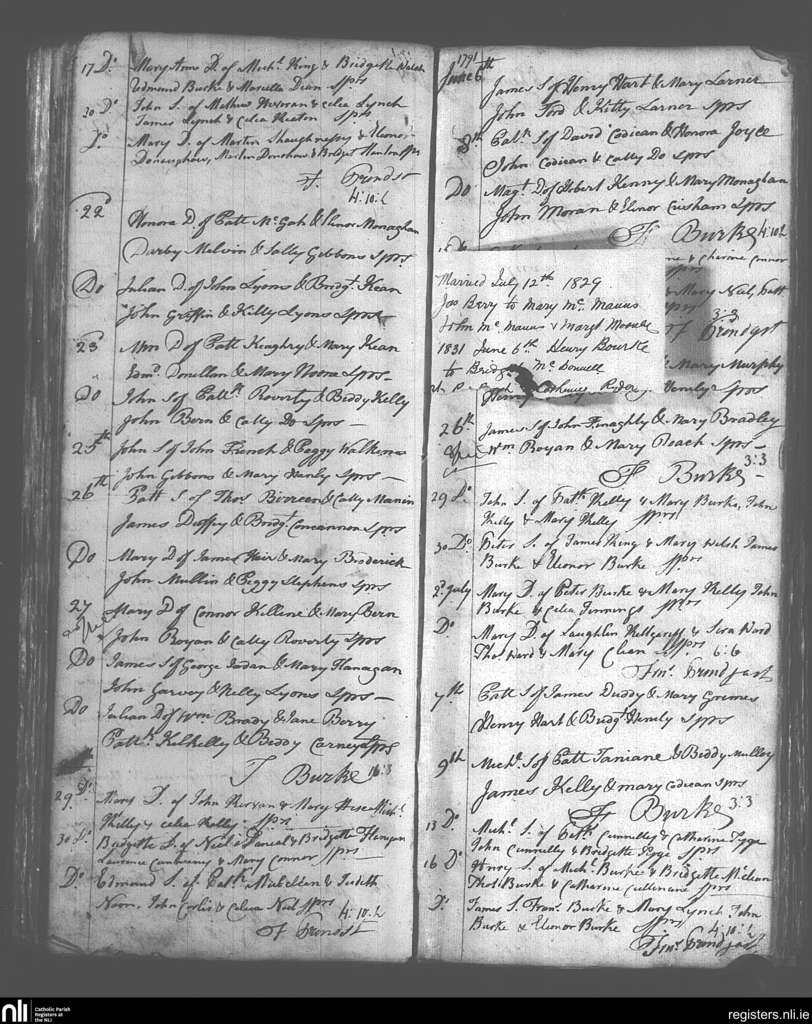 17 Do. Mary Ann D. of Mich.l King & Bridgette Walsh
Edmund Burke & Marcella Dian Sprs
20 Do John S. of Mathew Herwan & Celia Lynch
James Lynch & Celia Heaton Sprs
Do. Mary D. of Martin Shaughnessy & Elenor
Donoughow, Martin Donohow & Bridget Hanlon Sprs
4:10:
22d Honora D. of Patt McGah & Elinor Monaghan
Darby Melvin & Sally Gibbons Sprs
Do Julian D. of John Lyons & Bridgt. Kean
John Griffin & Kitty Lyons Sprs
23 Ann D of Patt Keaghry & Mary Kean
Edmd. Donellan & Mary Noone Sprs
Do John S of Patt Roverty & Biddy Kelly
John Bern & Catty Do Sprs
25th John S of John French & Peggy Walken
John Gibbons & Mary Hanly Sprs
26th Patt S. of Thos Birreen & Catty Manin
James Duffey & Bridgt. Concannon Sprs
Do Mary D of James Hair & Mary Broderick
John Mullin & Peggy Stephens Sprs
27 Mary D of Connor Killene & Mary Bern
John Royan & Catty Roverty Sprs
Do James S of George Jadan & Mary Flanagan
John Garvey & Kelly Lyons Sprs
Do Julian D of Wm Brady & Jane Berry
Patt. Kilkelly & Biddy Carney Sprs
F Burke 16:3
29. Do. Mary D. of John Kervan & Mary Hese Mich.l
Kelly & Celia Kelly Sprs
30 Do Bridgette D. of & Bridgette
Laurence & Mary Connor Sprs
Do. Edmund S. of Patk. & Judith
Noon. John & Celia Neil Sprs
4:10:
1791
June 6th James S of Henry Hart & Mary Larner
John Ford & Kitty Larner Sprs
8th Patk S of David Codican & Honora Joyce
John Codican & Catty Do Sprs
Do Magt. D of Hobert Kenny & Mary Monaghan
John Moran & Elinor Cuisham Sprs
F Burke 4:10:
Connor
& Mary Neil, Patt
3:3
Married July 12th 1829
Jos Berry to Mary Mc. Manus
John Mc. Manus & Margt
1831 June 6th Henry Bourke
to Bridget McDonnell
& Mary Murphy
Henry Sprs
26th James S of John Finaghty & Mary Bradley
Wm Royan & Mary Roach Sprs
F Burke 3:3
29 Do. John S. of Patk Kelly & Mary Burke, John
Kelly & Mary Kelly Sprs
30 Do. Peter S. of James King & Mary Welsh James
Burke & Elenor Burke Sprs
2d. July Mary D. of Peter Burke & Mary Kelly John
Burke & Celia Jennings Sprs
Do. Mary D. of Laughlin & Sera Ward
Thos. Ward & Mary Sprs
6:6
7th Patt S of James Duddy & Mary Grimes
Henry Hart & Bridgt Sprs
9th Michl. S of Patt Taniane & Biddy Mulloy
James Kelly & Mary Codican Sprs
F Burke 3:3
13 Do. Michl. S. of Patk Cunnelly & Catharine Tyge
John Cunnelly & Bridgette Tyge Sprs
16 Do. Henry S. of Michl. Burke & Bridgette
Thos Burke & Catharine Cullenane Sprs
Do. James S. Frans. Burke & Mary Lynch John
Burke & Elenor Burke Sprs
4:10:
nli Catholic Parish
Registers at
the NLI
registers.nli.ie